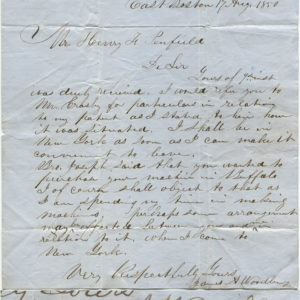 East Boston 17 Aug. 1850
Mr Henry H. Penfield
Dr Sir
Yours of 7th inst
was duly received. I would refer you to
Mr. Crosby for particulars in relation
to my patent as I stated to him how
it was situated. I shall be in
New York as soon as I can make it
convenient to leave.
Bro. Joseph said that you wanted to
purchase your machine in Buffalo
I of course shall object to that as
I am spending my time in making
machines, perhaps some arrangement
may be effected between you and me in
relation to it, when I come to
New York.
Very Respectfully Yours,
James A. Woodbury